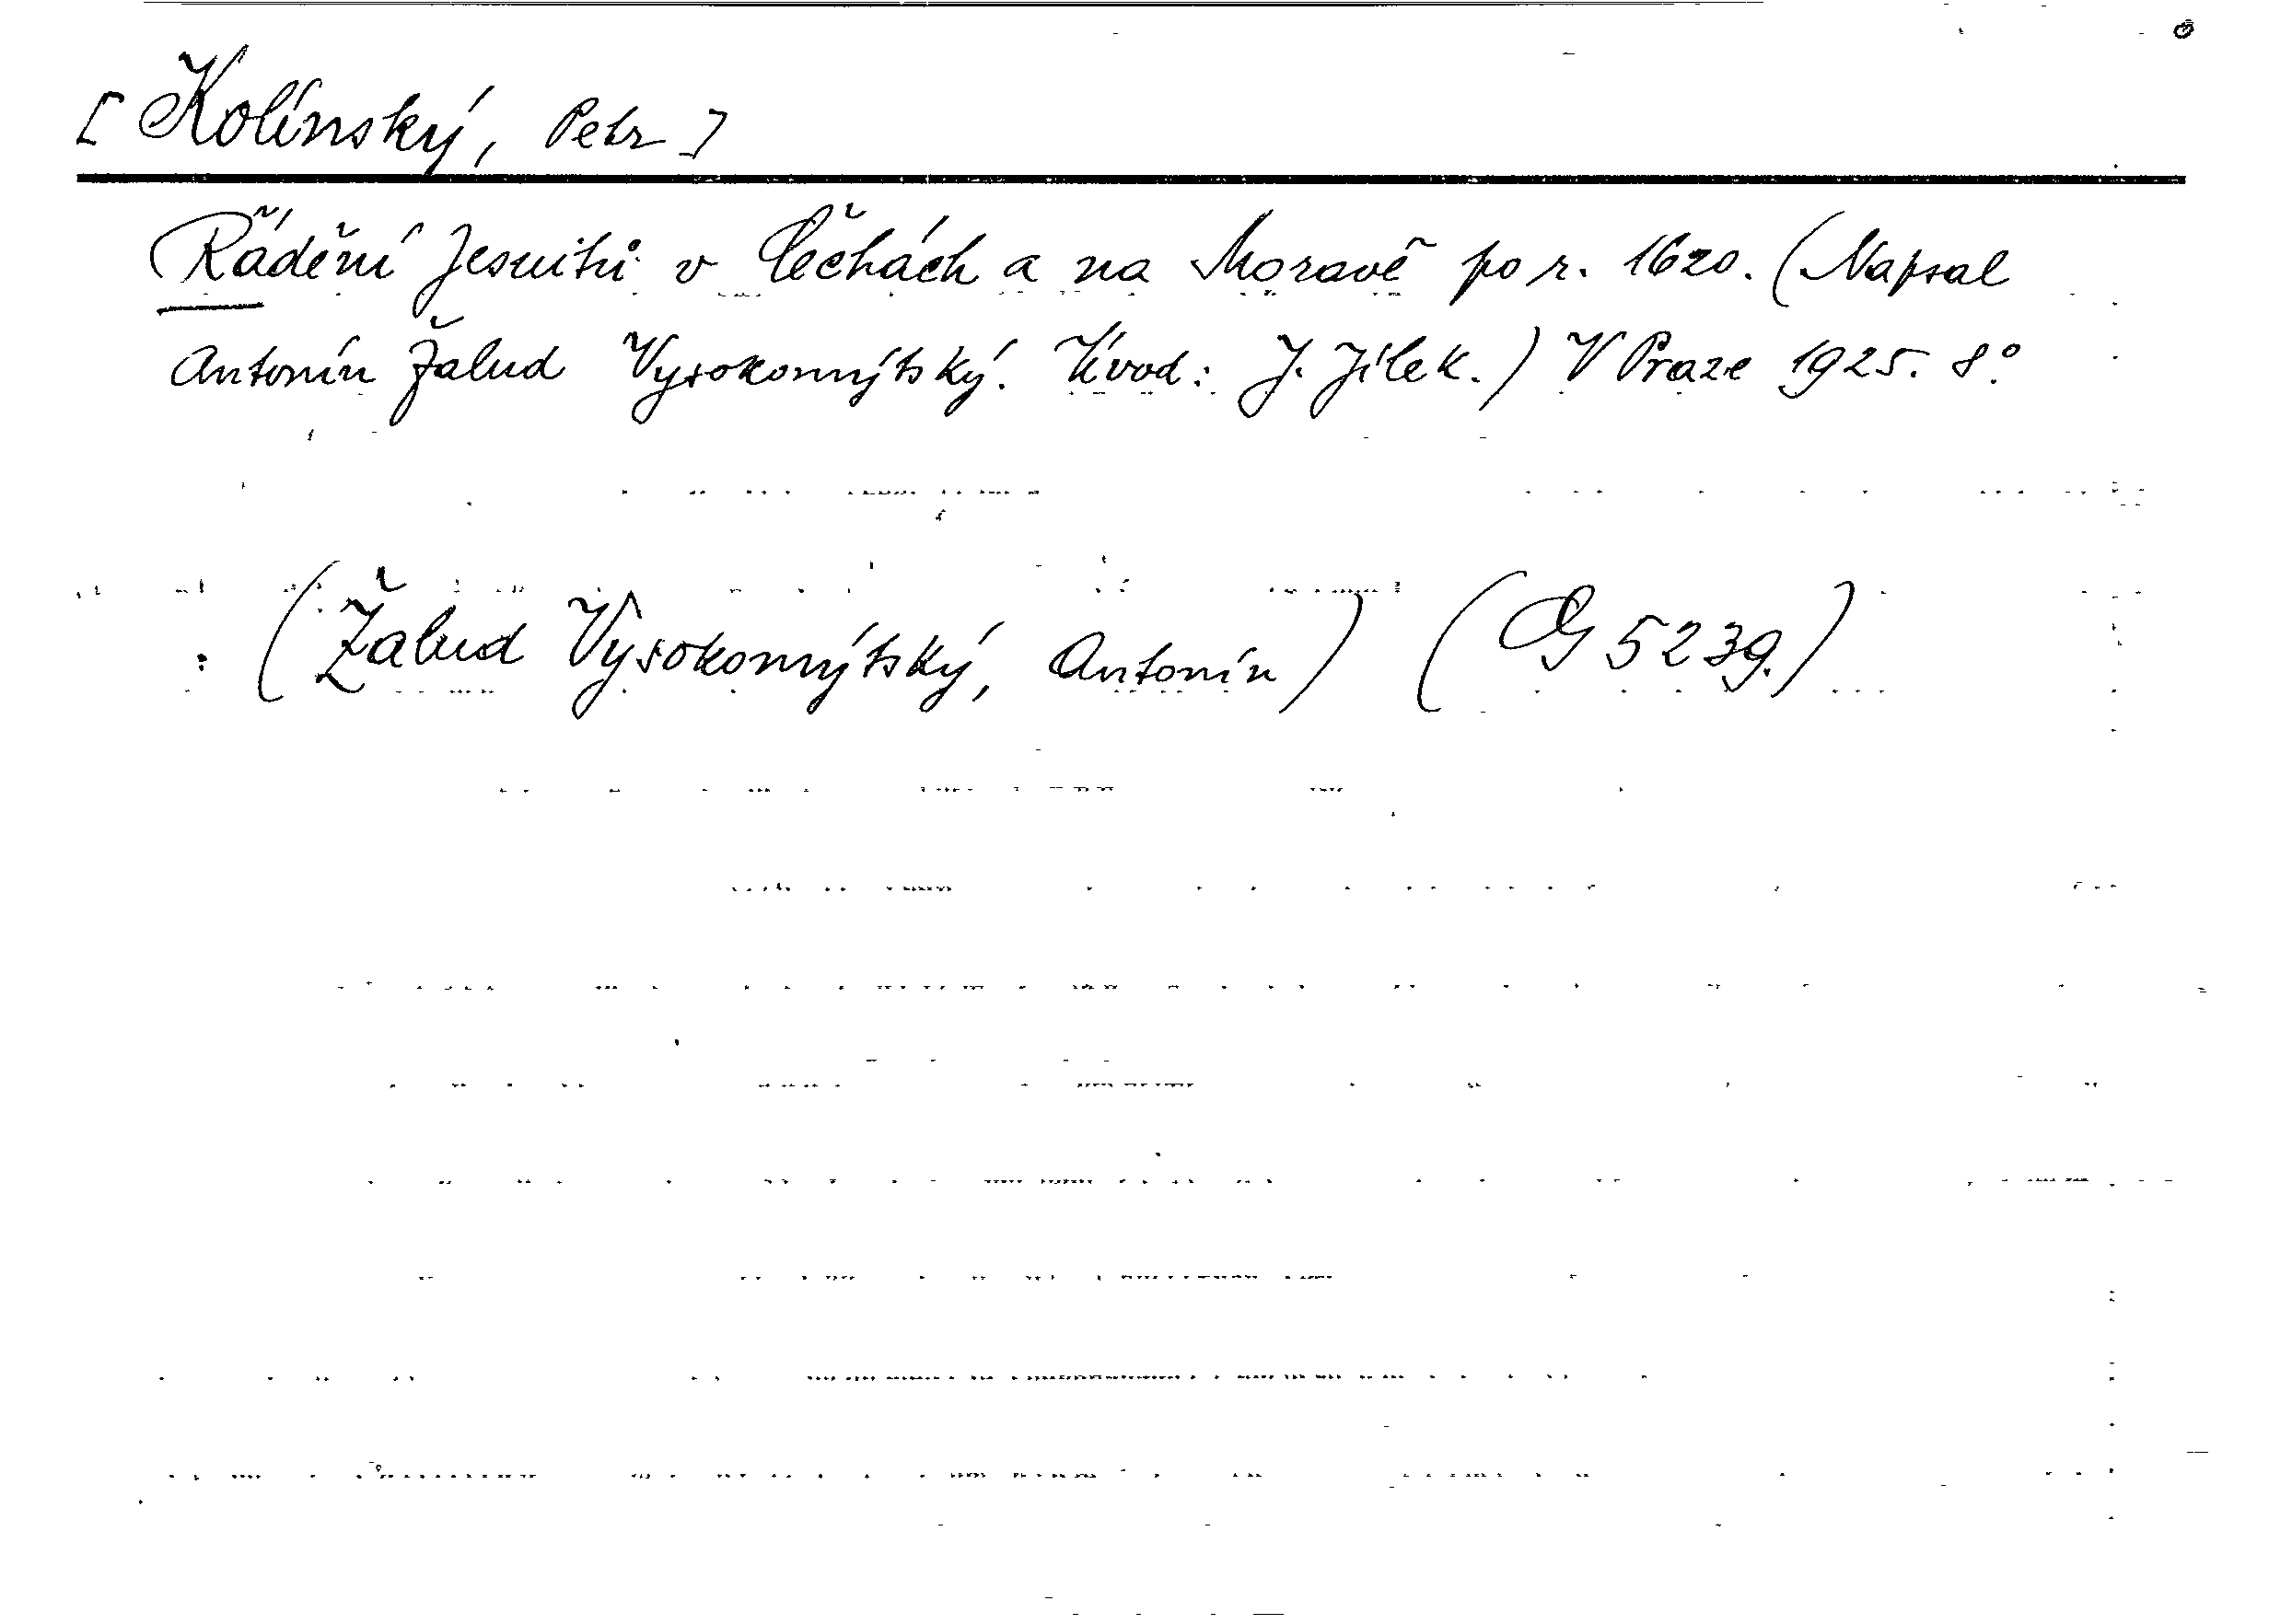 [Kolínský, Petr]
Řádění Jesuitů v Čechách a na Moravě po r. 1620. (Napsal
Antonín Žalud Vysokomýtský. Úvod: J. Jílek.) V Praze 1925. 8°.
: (Žalud Vysokomýtský, Antonín) (G 5239.)